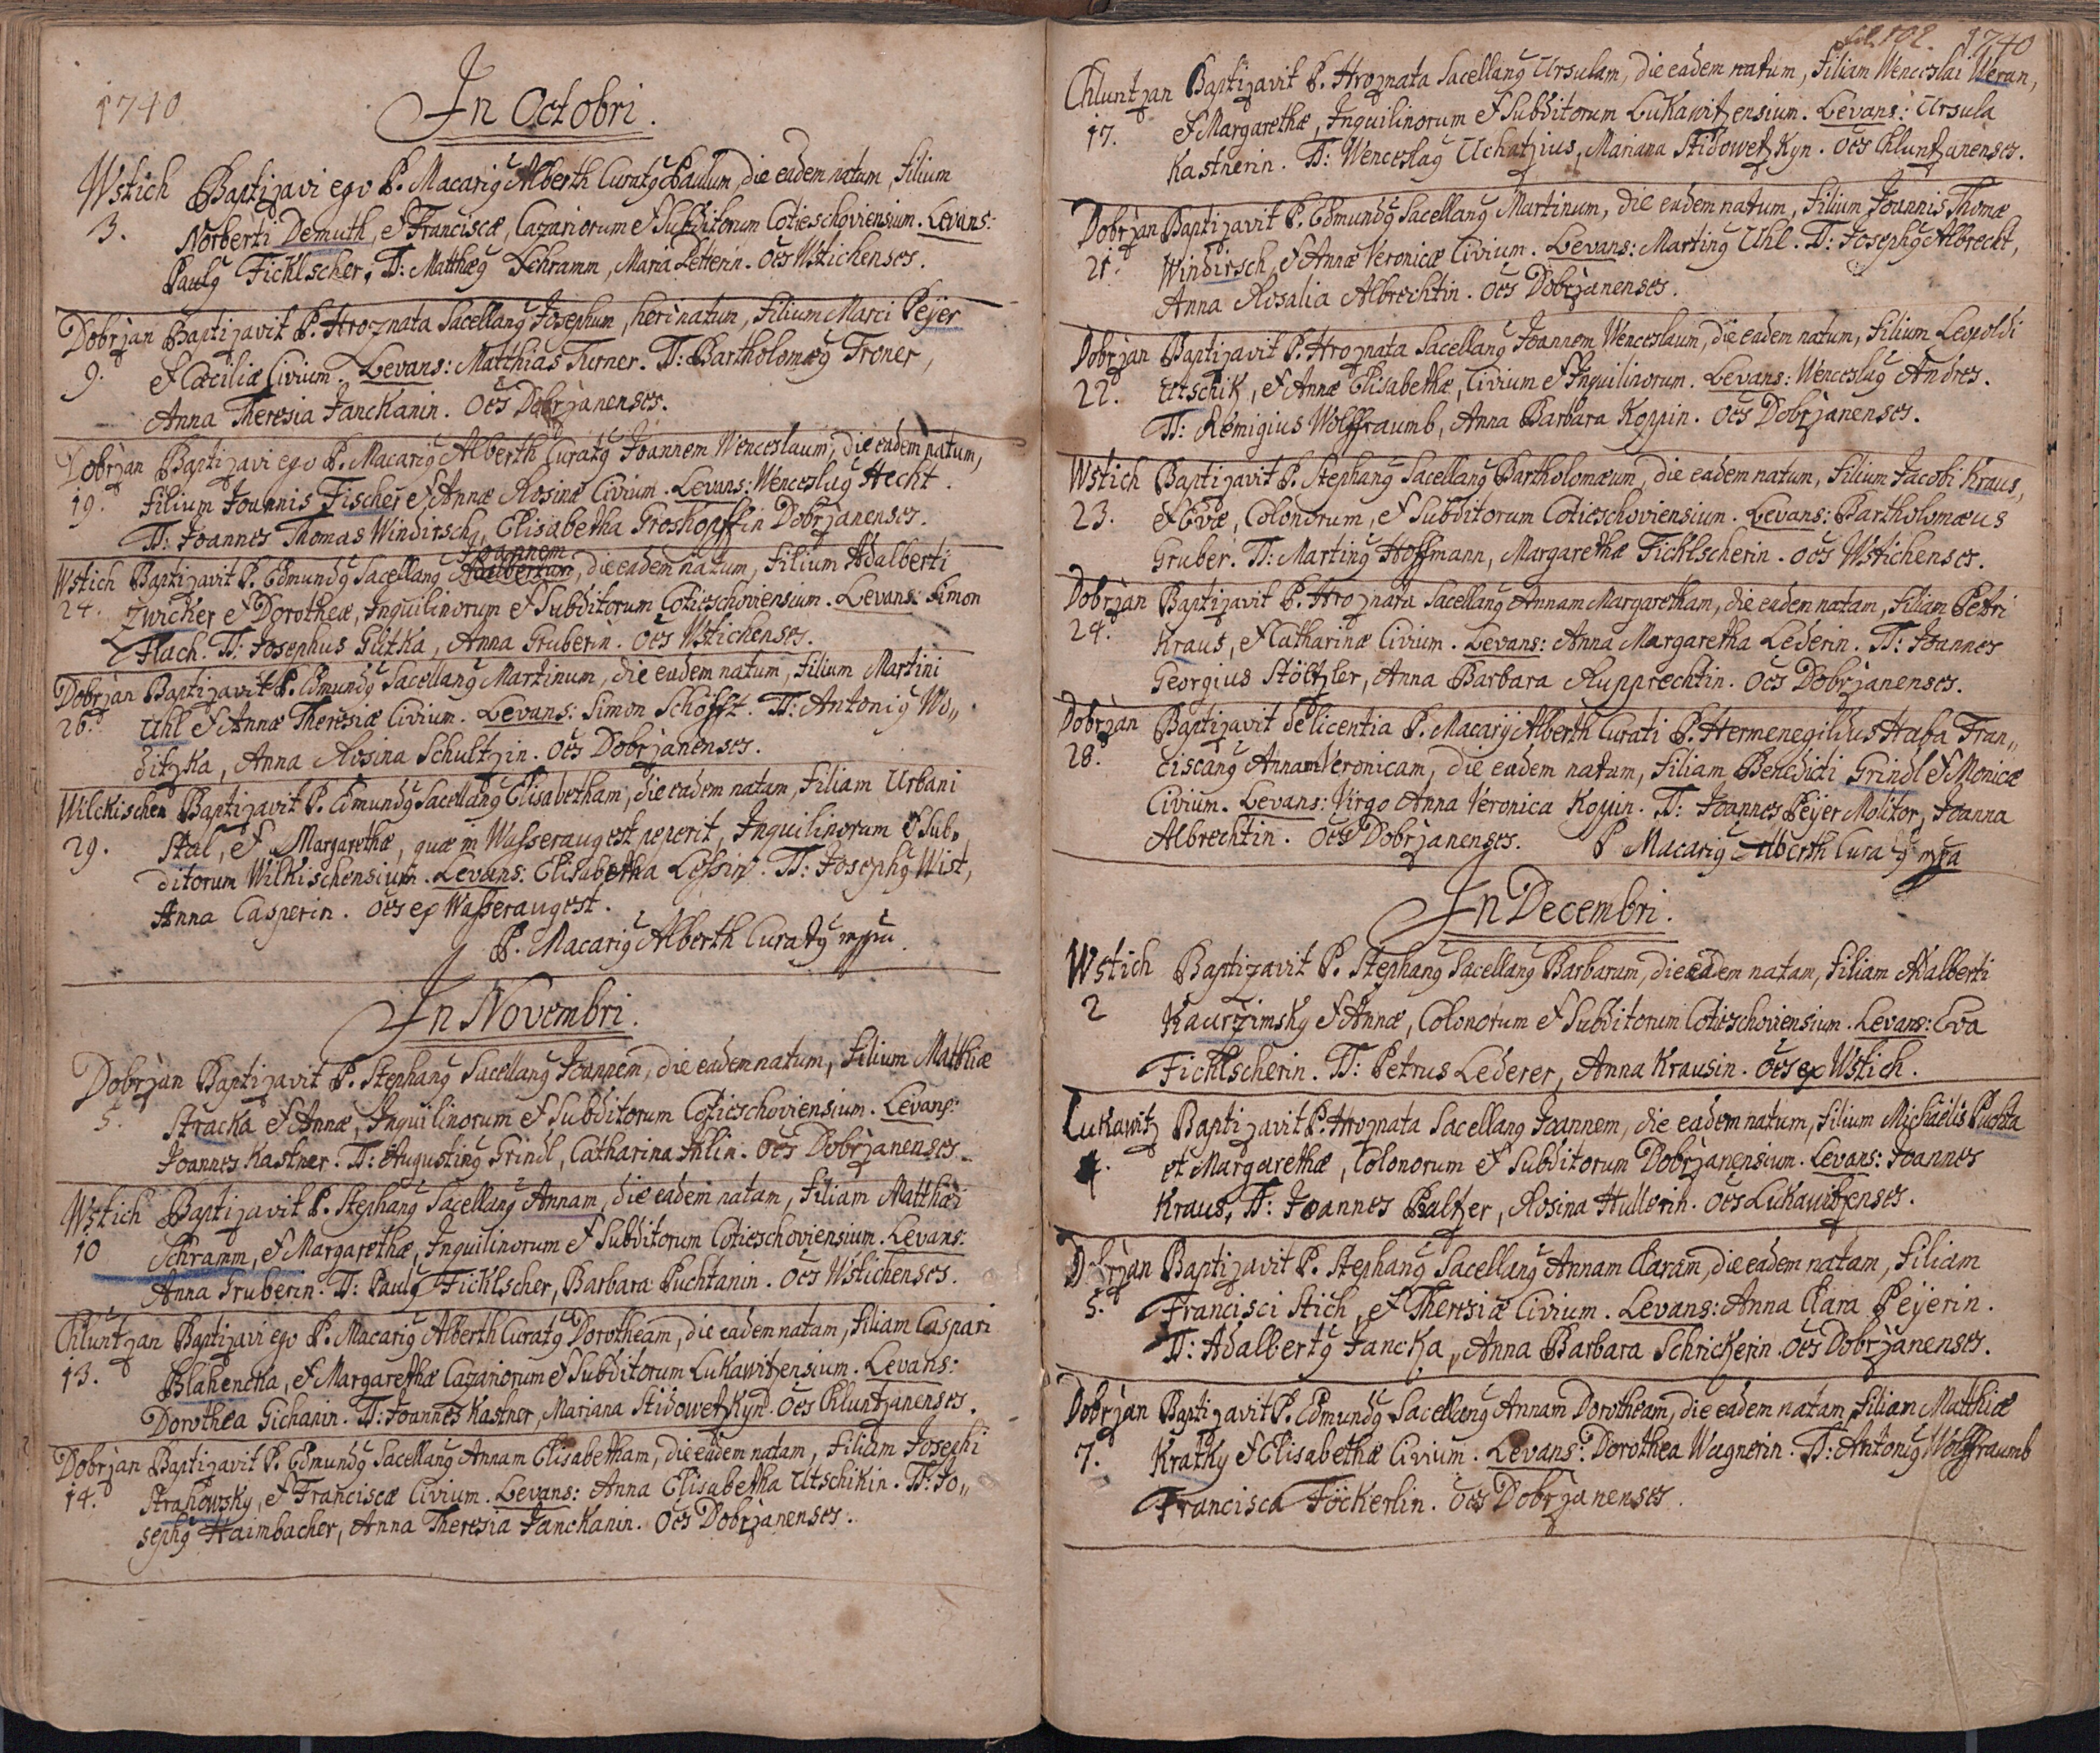 1740
In Octobri.
Wstich Baptizavi ego P. Macarig Alberth Curatg Paulum, die eadem natum, filium
3. Norberti Demuth, et Franciscæ, Cazariorum et Subditorum Cotieschoviensium. Levans:
Paulg Ficklscher, TT: Matthæg Schramm, Maria Petterin. Oes Wstichenses.
Dobrzan Baptizavit P. Hroznata Sacellang Josephum, heri natum, filium Marci Peÿer
9. et Cæciliæ Civium. Levans: Matthias Turner. TT: Bartholomæg Froner,
Anna Theresia Janckanin. Oes Dobrzanenses.
Dobrzan Baptizavi ego P. Macarig Alberth Curatg Joannem Wenceslaum, die eadem natum,
19. filium Joannis Fischer et Annæ Rosinæ Civium. Levans: Wenceslag Hecht.
TT: Joannes Thomas Windirsch, Elisabetha Groskopffin Dobrzanenses.
Joannem
Wstich Baptizavit P. Edmundg Sacellang Adalbertum, die eadem natum, filium Adalberti
24. Zwicker et Dorotheæ, Inquilinorum et Subditorum Cotieschoviensium. Levans: Simon
Flach. TT: Josephus Gütka, Anna Gruberin. Oes Wstichenses.
Dobrzan Baptizavit P. Edmundg Sacellang Martinum, die eadem natum, filium Martini
26. Uhl et Annæ Theresiæ Civium. Levans: Simon Schöfft. TT: Antonig Wo„
ditzka, Anna Rosina Schultzin. Oes Dobrzanenses.
Wilckischen Baptizavit P. Edmundg Sacellang Elisabetham, die eadem natam, filiam Urbani
29. Stal, et Margarethæ, quæ in Wasseraugest peperit, Inquilinorum et Sub„
ditorum Wilkischensium. Levans: Elisabetha Lessin. TT: Josephg Wist,
Anna Casperin. Oes ex Wasseraugest.
P. Macarig Alberth Curatg mppa
In Novembri.
Dobrzan Baptizavit P. Stephang Sacellang Joannem, die eadem natum, filium Matthiæ
5. Stracka et Annæ, Inquilinorum et Subditorum Cotieschoviensium. Levans:
Joannes Kastner. TT: Augusting Grindl, Catharina Ihlin. Oes Dobrzanenses.
Wstich Baptizavit P. Stephang Sacellang Annam, die eadem natam, filiam Matthæi
10 Schramm, et Margarethæ, Inquilinorum et Subditorum Cotieschoviensium. Levans:
Anna Gruberin. TT: Paulg Ficklscher, Barbara Puchtanin. Oes Wstichenses.
Chluntzan Baptizavi ego P. Macarig Alberth Curatg Dorotheam, die eadem natam, filiam Caspari
13. Blahencka, et Margarethæ Cazariorum et Subditorum Lukawitzensium. Levans:
Dorothea Gichanin. TT: Joannes Kastner, Mariana Stidowetzkyn. Oes Chluntzanenses.
Dobrzan Baptizavit P. Edmundg Sacellang Annam Elisabetham, die eadem natam, filiam Josephi
14. Strahowsky, et Franciscæ Civium. Levans: Anna Elisabetha Utschikin. TT: Jo„
sephg Haimbacher, Anna Theresia Janckanin. Oes Dobrzanenses.
fol. 102. 1740
Chluntzan Baptizavit P. Hroznata Sacellang Ursulam, die eadem natam, filiam Wenceslai Weran,
17. et Margarethæ, Inquilinorum et Subditorum Lukawitzensium. Levans: Ursula
Kastnerin. TT: Wenceslag Uchatzius, Mariana Stidowetzkyn. Oes Chluntzanenses.
Dobrzan Baptizavit P. Edmundg Sacellang Martinum, die eadem natum, filium Joannis Thomæ
21. Windirsch, et Annæ Veronicæ Civium. Levans: Marting Uhl. TT: Josephg Albrecht,
Anna Rosalia Albrechtin. Oes Dobrzanenses.
Dobrzan Baptizavit P. Hroznata Sacellang Joannem Wenceslaum, die eadem natum, filium Leopoldi
22. Utschik, et Annæ Elisabethæ, Civium et Inquilinorum. Levans: Wenceslag Andres.
TT: Remigius Wolffraumb, Anna Barbara Koppin. Oes Dobrzanenses.
Wstich Baptizavit P. Stephang Sacellang Bartholomæum, die eadem natum, filium Jacobi Kraus,
23. et Evæ, Colonorum, et Subditorum Cotieschoviensium. Levans: Bartholomæus
Gruber. TT: Marting Hoffmann, Margaretha Ficklscherin. Oes Wstichenses.
Dobrzan Baptizavit P. Hroznata Sacellang Annam Margaretham, die eadem natam, filiam Petri
24. Kraus, et Catharinæ Civium. Levans: Anna Margaretha Lederin. TT: Joannes
Georgius Stöltzler, Anna Barbara Rupprechtin. Oes Dobrzanenses.
Dobrzan Baptizavit de licentia P. Macarij Alberth Curati P. Hermenegildus Haba Fran„
28. ciscang Annam Veronicam, die eadem natam, filiam Benedicti Grindl et Monicæ
Civium. Levans: Virgo Anna Veronica Koppin. TT: Joannes Peÿer Molitor, Joanna
Albrechtin. Oes Dobrzanenses. P Macarig Alberth Curatg mppa
In Decembri.
Wstich Baptizavit P. Stephang Sacellang Barbaram, die eadem natam, filiam Adalberti
2 Kaurzimsky et Annæ, Colonorum et Subditorum Cotieschoviensium. Levans: Eva
Ficklscherin. TT: Petrus Lederer, Anna Krausin. Oes ex Wstich.
Lukawitz Baptizavit P. Hroznata Sacellang Joannem, die eadem natum, filium Michaëlis Puchta
4. et Margarethæ, Colonorum et Subditorum Dobrzanensium. Levans: Joannes
Kraus, TT: Joannes Baltzer, Rosina Hullerin. Oes Lukawitzenses.
Dobrzan Baptizavit P. Stephang Sacellang Annam Claram, die eadem natam, filiam
5. Francisci Stich, et Theresiæ Civium. Levans: Anna Clara Peÿerin.
TT: Adalbertg Jancka, Anna Barbara Schrickerin. Oes Dobrzanenses.
Dobrzan Baptizavit P. Edmundg Sacellang Annam Dorotheam, die eadem natam, filiam Matthiæ
7. Kratky et Elisabethæ Civium. Levans: Dorothea Wagnerin. TT: Antonig Wolffraumb
Francisca Föckerlin. Oes Dobrzanenses.